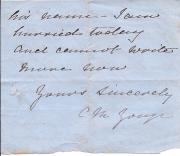 his name – I am
hurried today
and cannot write
more now
Yours sincerely
C M Yonge